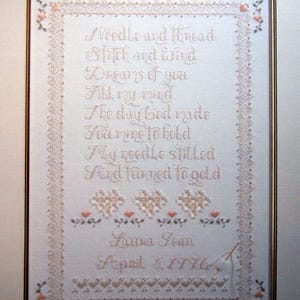 Needle and thread
Stitch and wind
Dreams of you
Fill my mind
The day God made
You mine to hold
My needle stilled
And turned to gold
Laura Jean
April 8, 1996